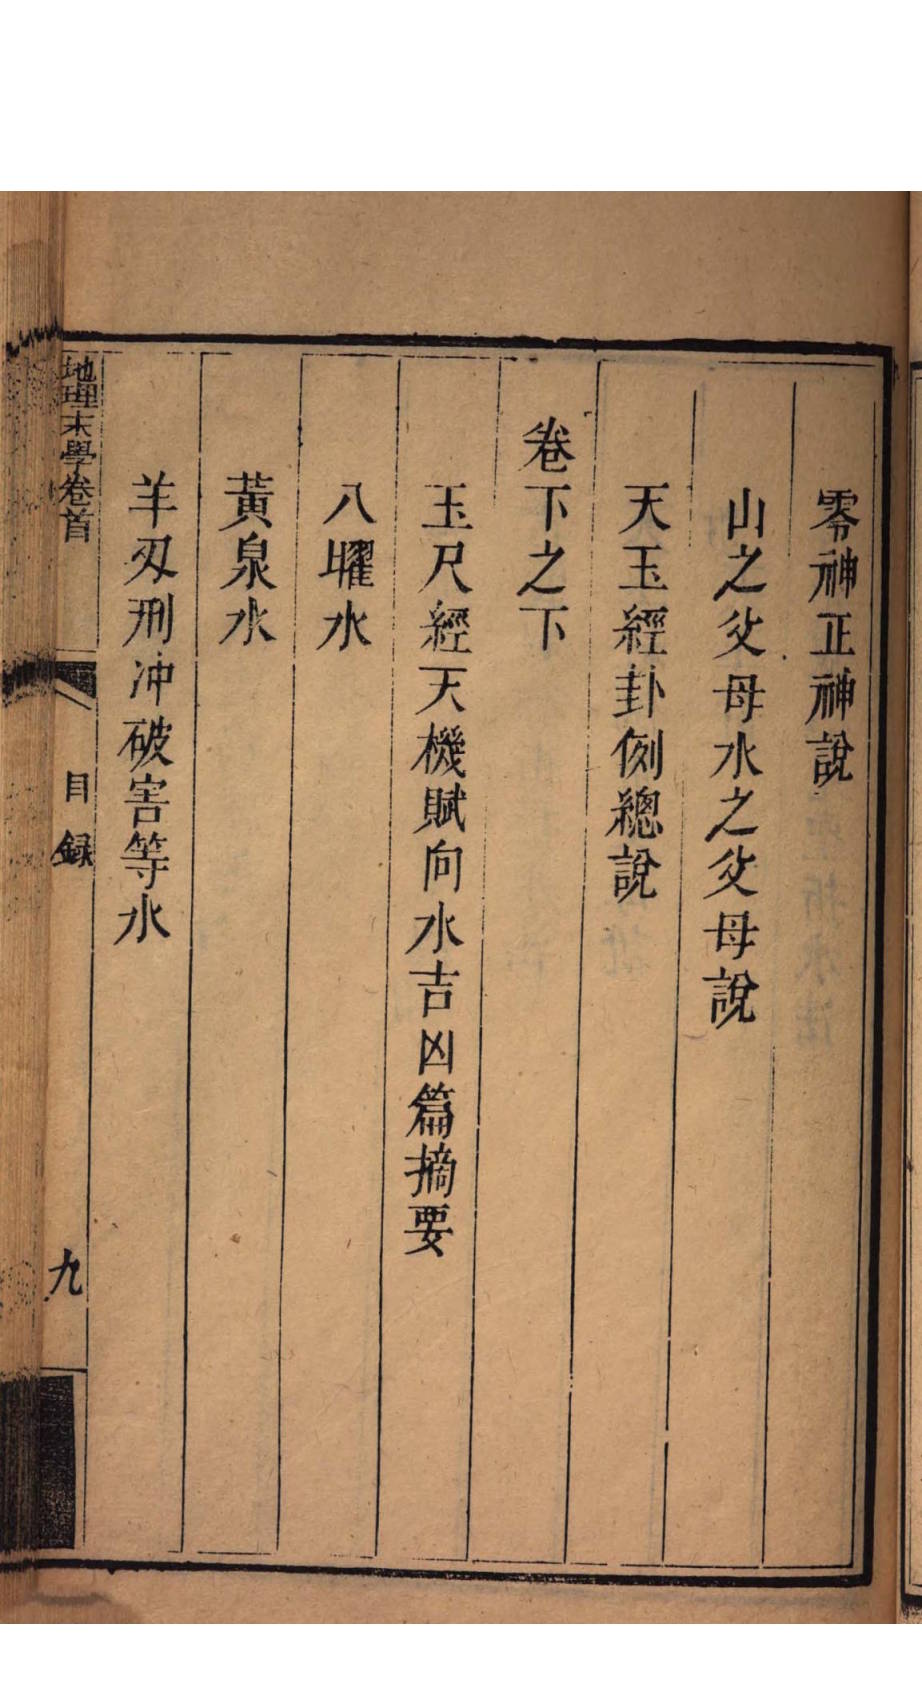 零神正神說
山之父母水之父母說
天玉經卦例總說
卷下之下
玉尺經天機賦向水吉凶篇摘要
八曜水
黃泉水
羊刃刑冲破害等水
地理末學卷首
目録
九